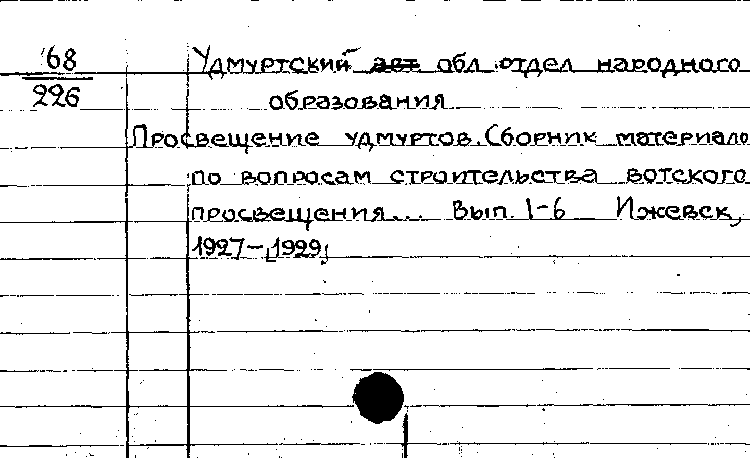 '68
226
Удмуртский авт обл отдел народного
образования
Просвещение удмуртов. Сборник материало
по вопросам строительства вотского
просвещения... Вып. 1-6 Ижевск,
1927-[1929]